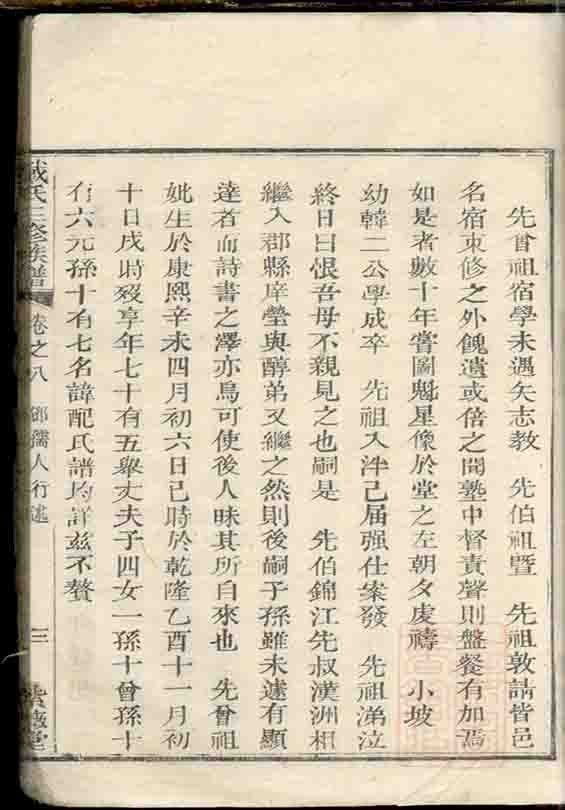 先曾祖宿學未遇矢志教　先伯祖暨　先祖敦請皆邑
名宿束修之外餽遺或倍之聞塾中督責聲則盤餐有加焉
如是者數十年嘗圖魁星像於堂之左朝夕虔禱　小坡
幼韓二公學成卒　先祖入泮已届强仕案發　先祖涕泣
終日曰恨吾母不親見之也嗣是　先伯錦江先叔漢洲相
繼入郡縣庠瑩與醇弟又繼之然則後嗣子孫雖未遽有顯
達者而詩書之澤亦烏可使後人昧其所自來也　先曾祖
妣生於康熙辛未四月初六日己時於乾隆乙酉十一月初
十日戌時殁享年七十有五舉丈夫子四女一孫十曾孫十
有六元孫十有七名諱配氏譜均詳玆不贅
戴氏三修族譜
卷之八　鄧孺人行述　三